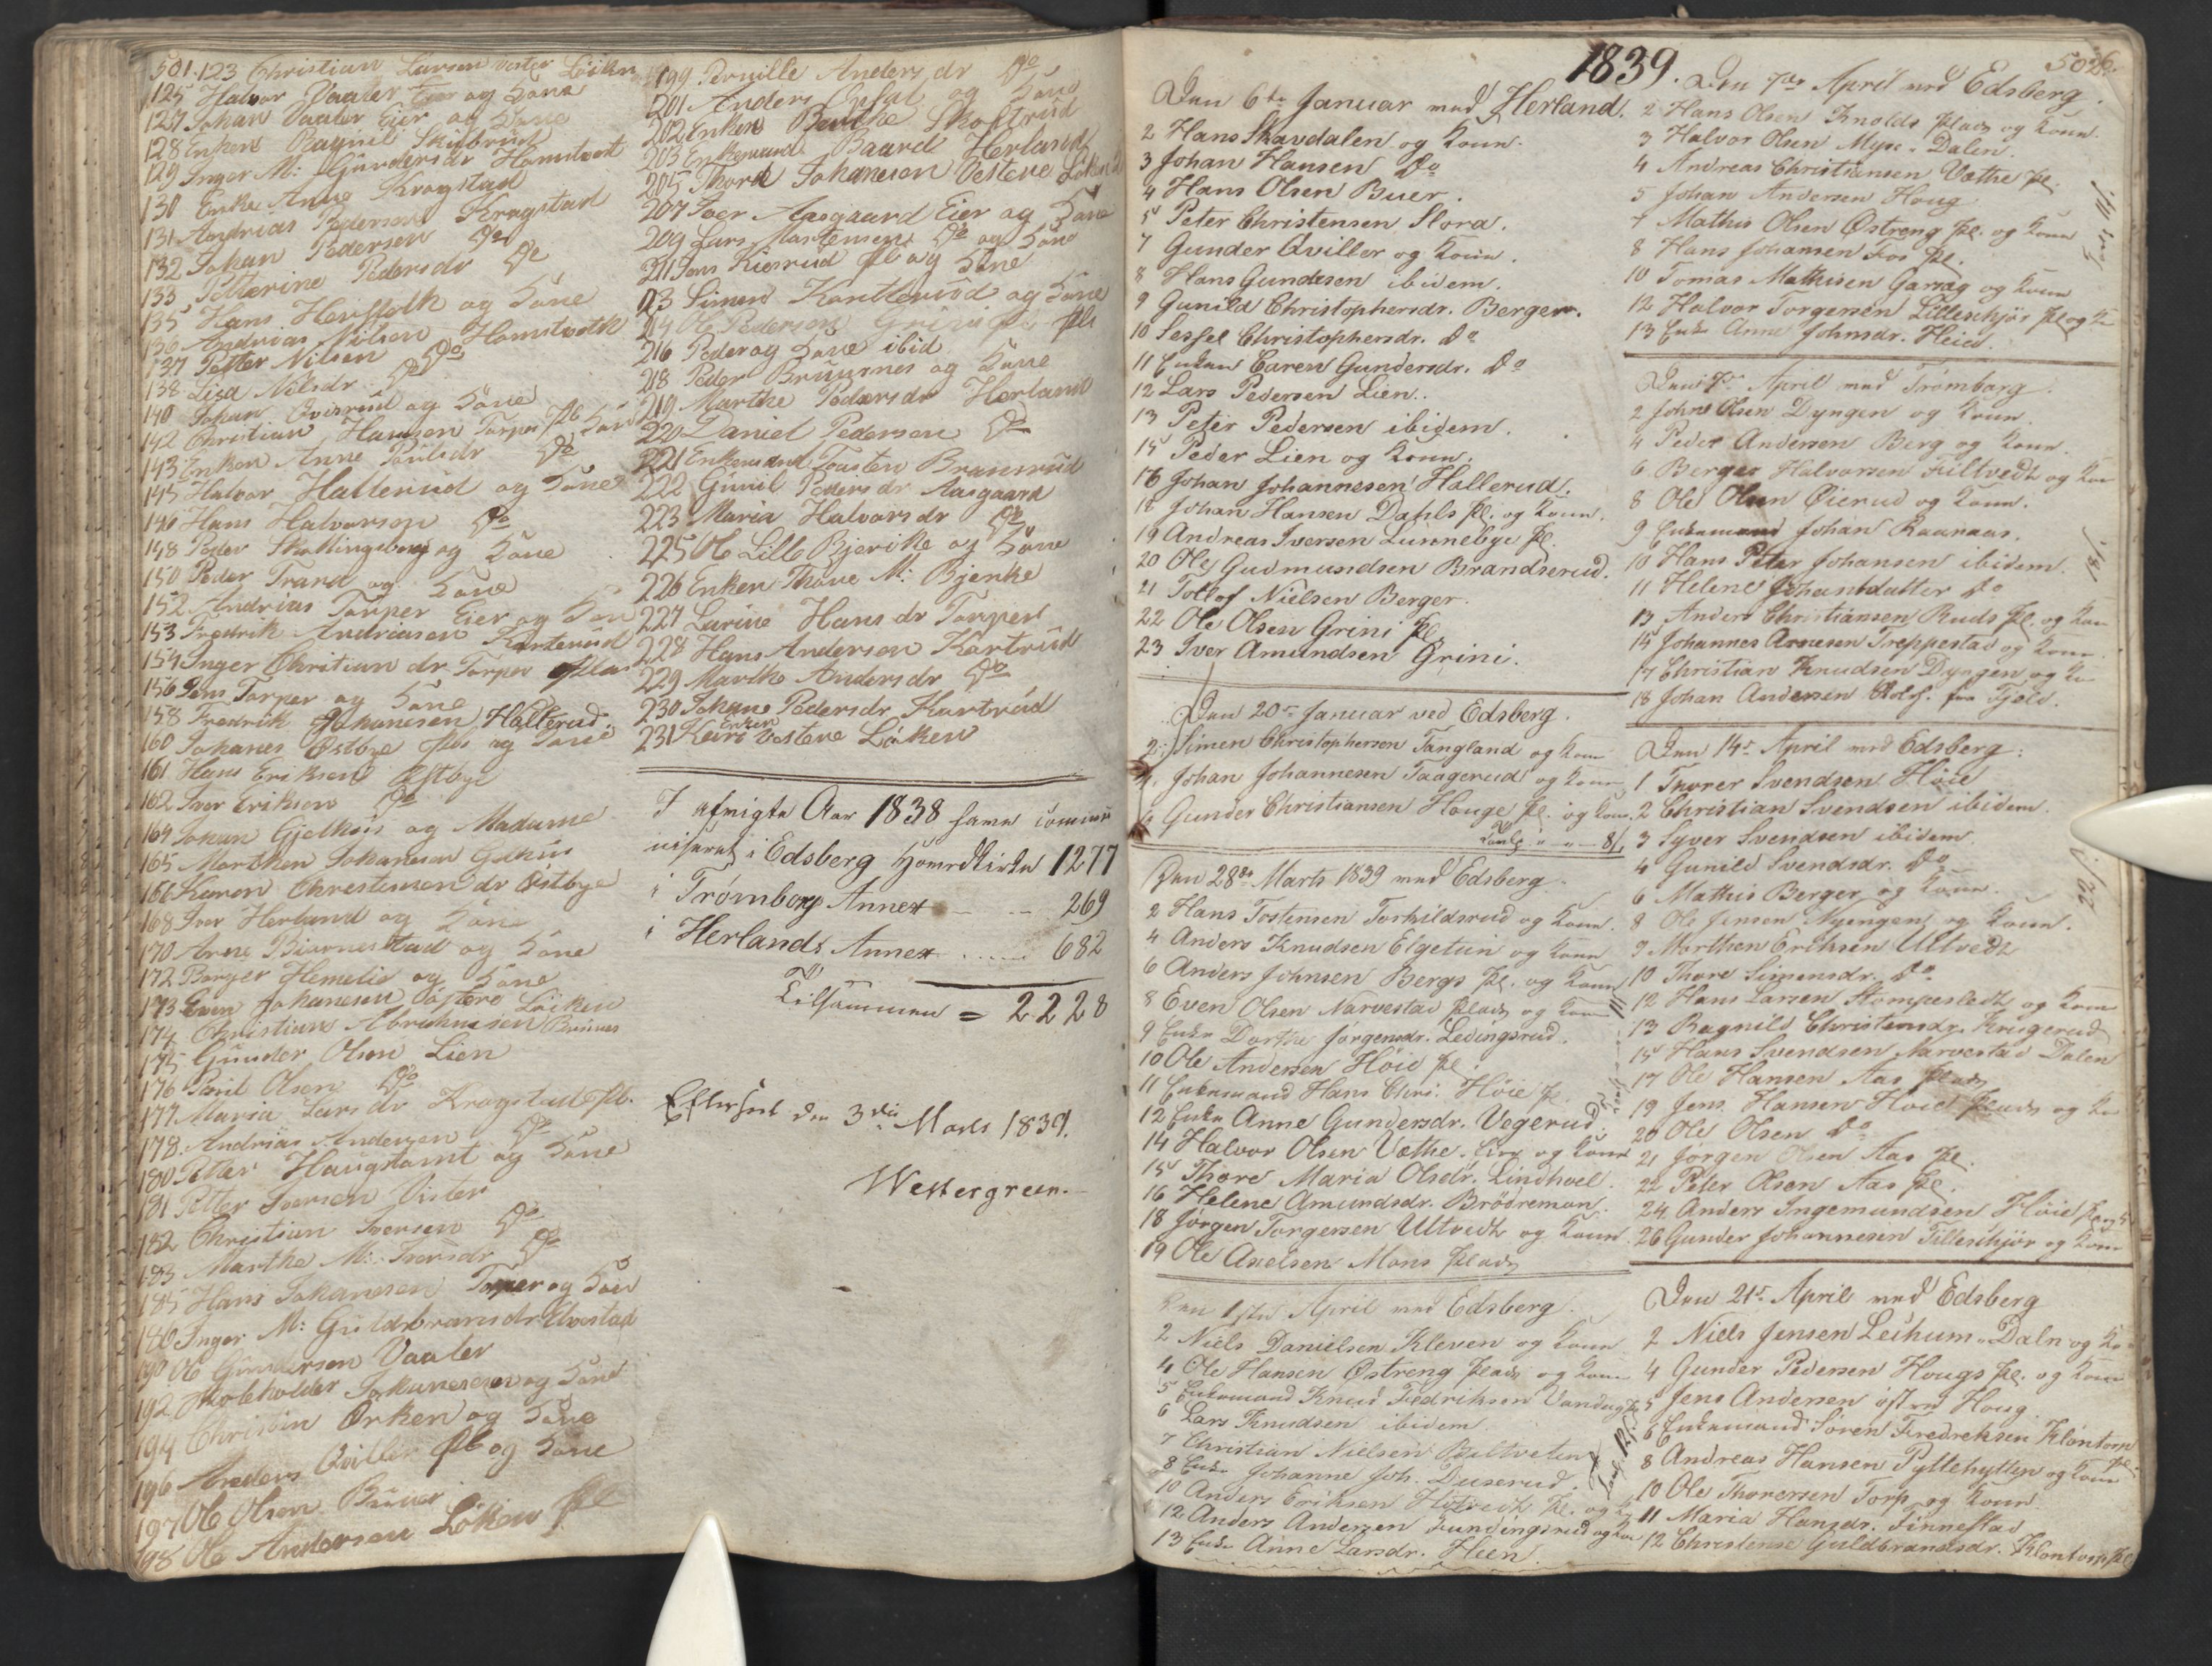 501. 123 Christian Larsen vester Löken
125 Halvor Vaaler Eier og Kone
127 Johan Vaaler Eier og Kone
128 Enken Ragnil Skibrud
129 Inger M: Gundersdr Hamtvedt
130 Enke Anne Kragstad
131 Andrias Pedersen Kragstad
132 Johan Pedersen Do
133 Petterine Pedersdr Do
135 Hans Herfolk og Kone
136 Andrias Nilsen Hamtvedt
137 Petter Nilsen Do
138 Lisa Nilsdr Do
140 Johan og Kone
142 Christian Hansen Torper Pl og Kone
143 Enken Anne Poulsdr Do
145 Halvor Hallerud og Kone
146 Hans Halvorsen Do
148 Peder Skallingsberg og Kone
150 Peder Trand og Kone
152 Andrias Torper Eier og Kone
153 Fredrik Andriasen Karterud
154 Inger Christian dr Torper Plas
156 Jens Torper og Kone
158 Fredrik Johanesen Hallerud.
160 Johanes Østbye Pls og Kone
161 Hans Eriksen Østbye
162 Iver Eriksen Do
164 Johan Gjelhus og Madame
165 Marthen Johanesen Gjelhus
166 Karen Christensen dr Østbye
168 Iver Herland og Kone
170 Arne Biørnestad og Kone
172 Borger Hemelie og Kone
173 Even Johanesen Vestere Löken
174 Christian Abrahmsen
175 Gunder Olsen Lien
176 Poul Olsen Do
177 Maria Larsdr Kragstad Pl.
178 Andrias Andersen Do
180 Petter Haugtomt og Kone
181 Petter Iversen Vister
182 Christian Iversen Do
183 Marthe M: Iversdr Do
185 Hans Johanesen Torper og Kone
186 Inger M: Guldbransdr
190 Ole Gundersen Vaaler
192 Skoleholder Johanesen og Kone
194 Christin Ørken og Kone
196 Anders Qviller Pl og Kone
197 Ole Olsen Buer
198 Ole Andersen Löken Pl
199 Pernille Andersdr Do
201 Anders Opsal og Kone
202 Enken Berthe Skoltrud
203 Enkemand Baard Herland
205 Thord Johanesen Vestere Löken
207 Iver Aasgaard Eier og Kone
209 Lars Mortensen Do og Kone
211 Jens Kiesrud Pl og Kone
213 Simen Kantterud og Kone
214 Ole Pedersen Grini Pl
216 Peder og Kone ibid
218 Peder Bruusnes og Kone
219 Marthe Pedersdr Herland
220 Daniel Pedersen Do
221 Enkemand Tosten Brannrud
222 Gunil Pedersdr Aasgaard
223 Maria Halvorsdr Do
225 Ole Lille Bjerke og Kone
226 Enken Thore M: Bjerke
227 Larine Hansdr Torper
228 Hans Anderson Kartrud
229 Marthe Andersdr Do
230 Johane Pedersdr Kartrud
231 Enken Kari Vestere Löken
I afvigte Aar 1838 have commu-
niceret i Edsberg Hovedkirke 1277
i Trømborg Annex 269
i Herlands Annex 682
Tilsammen = 2228
Efterseet den 3die Marts 1839.
Westergreen.
1839.
Den 6te Januar ved Herland.
2 Hans Skavdalen og Kone.
3 Johan Hansen Do
4 Hans Olsen Buer.
5 Peter Christensen Slora.
7 Gunder Qviller og Kone.
8 Hans Gundesen ibidem.
9 Gunild Christophersdr. Berger.
10 Sessel Christophersdr. Do
11 Enken Caren Gundersdr. Do
12 Lars Pedersen Lien.
13 Peter Pedersen ibidem.
15 Peder Lien og Kone.
16 Johan Johannesen Hallerud.
18 Johan Hansen Dahls Pl. og Kone.
19 Andreas Iversen Lunnebye Pl.
20 Ole Gudmundsen Brandserud.
21 Tollof Nielsen Berger.
22 Ole Olsen Grini Pl.
23 Iver Amundsen Grini.
Den 20de Januar ved Edsberg.
2. Simen Christophersen Tangland og Kone
4. Johan Johannesen Taagerud og Kone
6 Gunder Christiansen Houge Pl. og Kone.
Den 28de Marts 1839 ved Edsberg.
2 Hans Tostensen Torkildsrud og Kone.
4 Anders Knudsen Elgetun og Kone
6 Anders Johnsen Bergs Pl. og Kone
8 Even Olsen Narvestad Plads og Kone
9 Enke Dorthe Jørgensdr. Ledingsrud.
10 Ole Andersen Høie Pl.
11 Enkemand Hans Chri. Høie Pl.
12 Enke Anne Gundersdr. Vegerud
14 Halvor Olsen Vathe. Eier og Kone
15 Thore Maria Olsdr. Lindhoel.
16 Helene Amundsdr. Brödremon.
18 Jörgen Torgersen Ultvedt og Kone.
19 Ole Axelsen Mons Plads
Den 1ste April ved Edsberg.
2 Niels Danielsen Kleven og Kone
4 Ole Hansen Østreng Plads og Kone
5 Enkemand Knud Fredriksen
6 Lars Knudsen ibidem.
7 Christian Nielsen Biltveten
8 Enke Johanne Joh. Duserud.
10 Anders Eriksen Pl. og K
12 Anders Andersen Fundingsrud og Kone
13 Enke Anne Larsdr. Heen.
502.
Den 7de April ved Edsberg.
2 Hans Olsen Knolds Plads og Kone.
3 Halvor Olsen Myse-Dalen.
4 Andreas Christiansen Vathe Pl.
5 Johan Andersen Houg
7 Mathis Olsen Østreng Pl. og Kone
8 Hans Johansen Fos Pl.
10 Tomas Mathisen Garseg og Kone
12 Halvor Torgersen Lilleschjör Pl og K
13 Enke Anne Johnsdr. Heid.
Den 7de April ved Trömborg.
2 John Olsen Dyngen og Kone
4 Peder Andersen Berg og Kone.
6 Berger Halvorsen Filtvedt og Kone
8 Ole Olsen Øierud og Kone.
9 Enkemand Johan Raanaas.
10 Hans Peter Johansen ibidem.
11 Helene Johansdatter Do
13 Anders Christiansen Ruds Pl. og Kone
15 Johannes Arnesen Treppestad og Kone
17 Christian Knudsen Dyngen og K
18 Johan Andersen fra Fjeld.
Den 14de April ved Edsberg.
1 Thorer Svendsen Høie
2 Christian Svendsen ibidem.
3 Syver Svendsen ibidem
4 Gunild Svendsdr. Do
6 Mathis Berger og Kone.
8 Ole Jensen Nyengen og Kone.
9 Morthen Eriksen Ultvedt
10 Thore Simensdr. Do
12 Hans Larsen Stompesledt og Kone
13 Ragnild Christensdr. Krugerud
15 Hans Svendsen Narvestad Dalen
17 Ole Hansen Aas Plads
19 Jens Hansen Høie Plads og K
20 Ole Olsen Do
21 Jørgen Olsen Aas Pl.
22 Peter Olsen Aas Pl.
24 Anders Ingemundsen Høie Pl og K
26 Gunder Johannesen Tilleschjör og Kone
Den 21de April ved Edsberg
2 Niels Jensen Leihum-Daln og K
4 Gunder Pedersen Hougs Pl. og Kone
5 Jens Andersen østre Houg
6 Enkemand Søren Fredreksen Klontorp
8 Andreas Hansen Pyttehytten og Kone
10 Ole Thoresen Torp og Kone.
11 Maria Hansdr. Finnestad
12 Christense Guldbrandsdr. Klontorp Pl